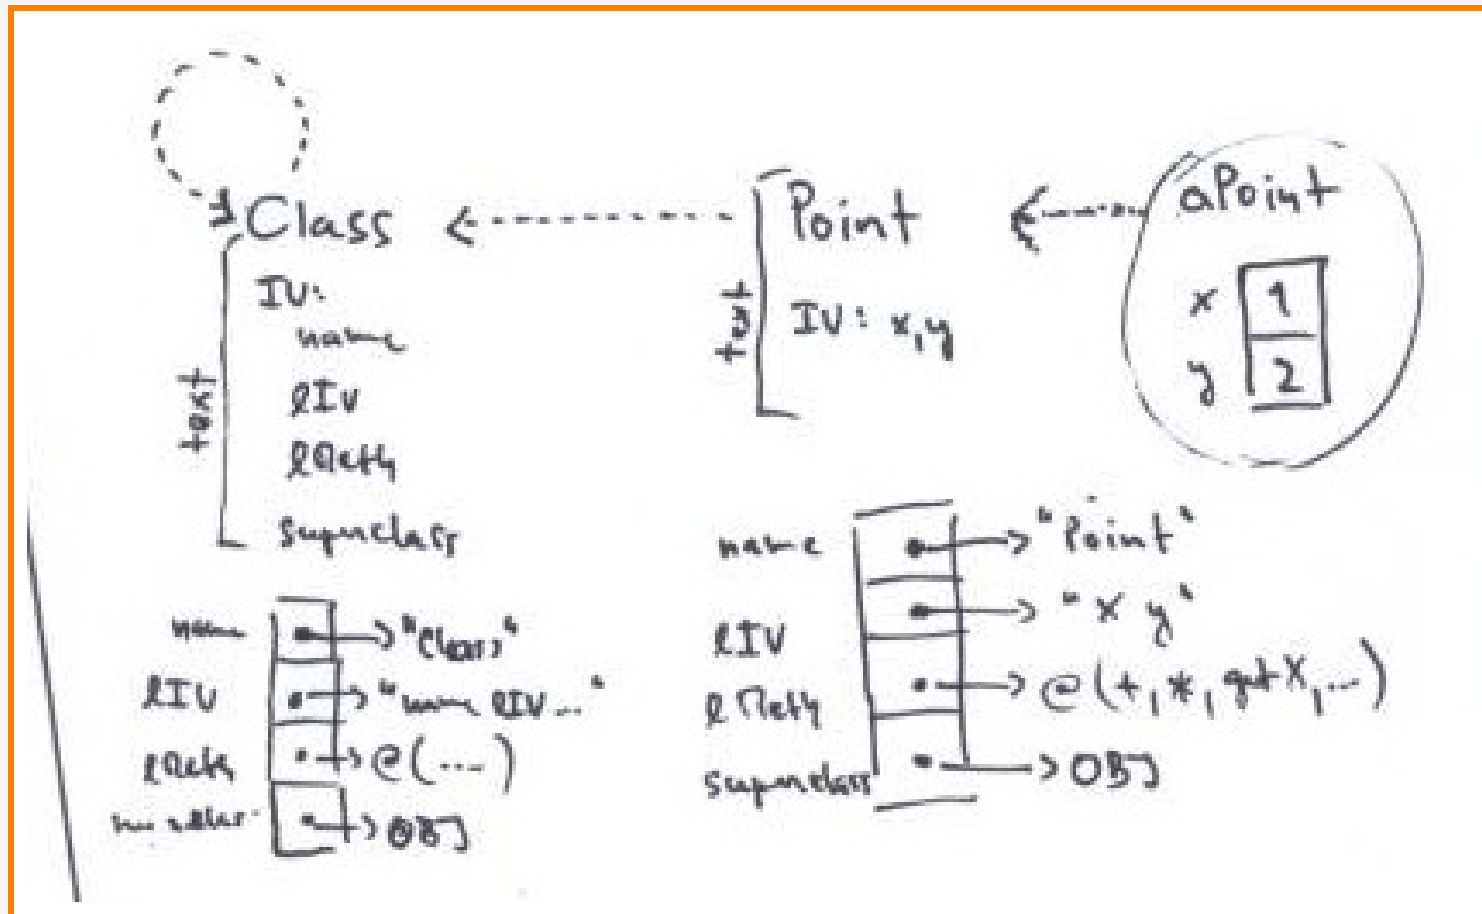 Class
IV:
name
lIV
lMeth
superclass
text
Point
IV: x,y
text
aPoint
x 1
y 2
name "Class"
lIV "name lIV..."
lMeth @(....)
OBJ
name "Point"
lIV "x y"
lMeth @(+,*,getX,...)
superclass OBJ